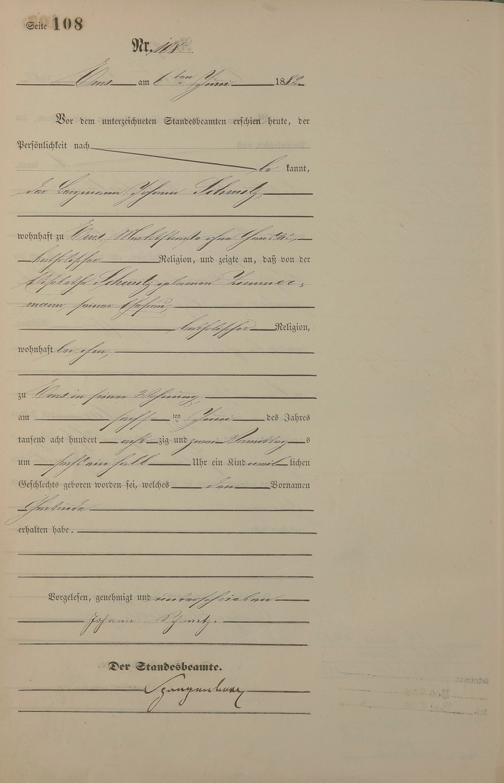 Seite 108
Nr. 108
Ems am 6 ten Juni 1882
Vor dem unterzeichneten Standesbeamten erschien heute, der
Persönlichkeit nach
be kannt,
der Bergmann Johann Schmitz
wohnhaft zu Ems, Marktstraße ohne
katholischer Religion, und zeigte an, daß von der
Schmitz geborenen Zimmer-
mann, seiner Ehefrau,
katholischer Religion,
wohnhaft bei ihm,
zu Ems in seiner Wohnung
am sechs ten Juni des Jahres
tausend acht hundert acht zig und zwei Vormittags
um Uhr ein Kind weib lichen
Geschlechts geboren worden sei, welches den Vornamen
erhalten habe.
Vorgelesen, genehmigt und unterschrieben
Johann Schmitz
Der Standesbeamte.
Spangenberg